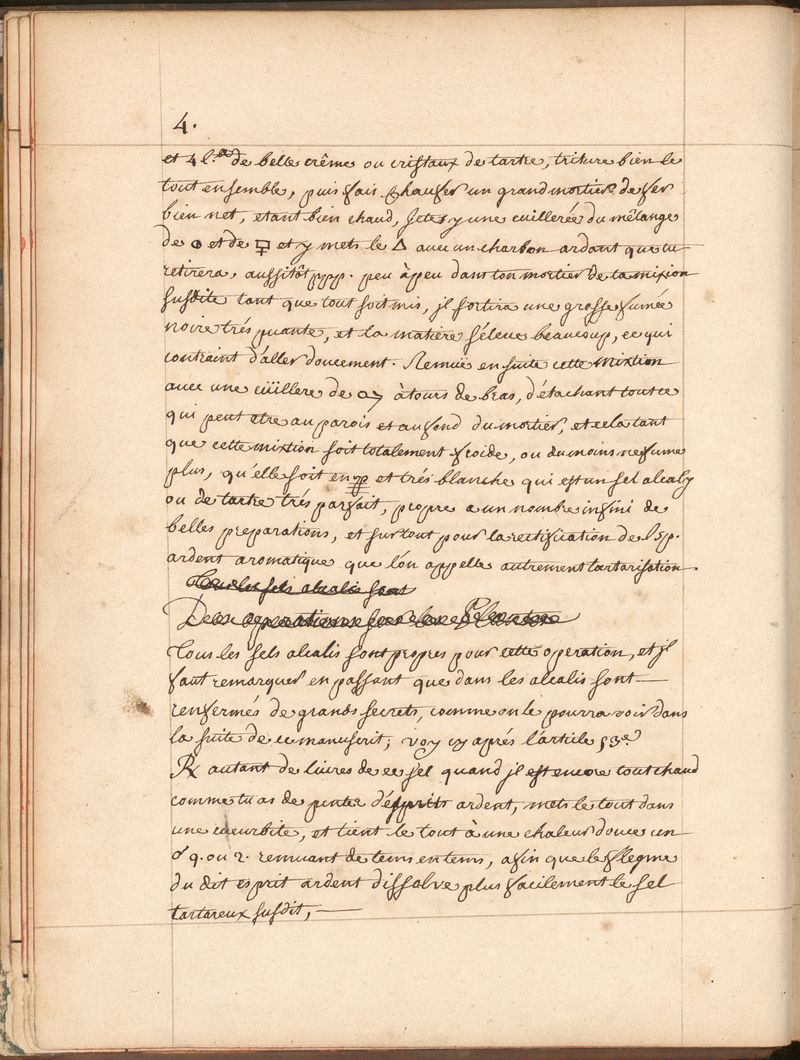 4.
et 4 l.ª de belle crême ou cristaux de tartre, triture bien le
tout ensemble, puis fais chaufer un grand mortier de fer
bien net, etant bien chaud, Jetes y une cuillerée du mêlange
de et de et y mets le 🜂 avec un charbon ardant que tu
retirera, aussitôt ppp. peu à peu dans ton mortier de ta mixion
susdite tant que tout soit mis, jl sortira une grosse fumée
noire trés puante, et la matiere s'éleve beaucoup, ce qui
contraint d'aller doucement. Remuë ensuite cette mixtion
avec une cüillere de à tours de bras, d'étachant tout ce
qui peut etre au parois et au fond du mortier, et cela tant
que cette mixtion soit totalement froide, ou du moins ne fume
plus, qu'elle soit en et trés blanche qui est un sel alcaly
ou de tartre trés parfait, propre a un nombre infini de
belles preparations, et surtout pour la rectification de l'sp.
ardent aromatique que l'on appelle autrement tartarisation.
Tous les sels alcalis sont
Tous les sels alcalis sont propres pour cette operation, et jl
faut remarquer en passant que dans les alcalis sont
renfermés de grands secrets, comme on le pourra voir dans
la suite de ce manuscrit; voy cy aprés l'article 53.e
℞ autant de livres de ce sel quand jl est encore tout chaud
comme tu as de pintes d'esprits ardent, mets le tout dans
une cucurbite, et tient le tout à une chaleur douce un
ou 2. remuant de tems en tems, afin que le flegme
du dit esprit ardent dissolve plus facilement le sel
tartareux susdit,